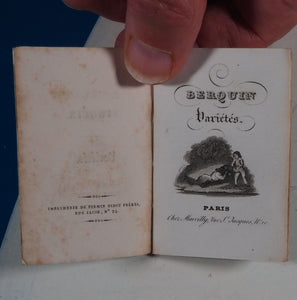 IMPRIMERIE DE FIRMIN DIDOT FRÈRES,
RUE JACOB, Nº 24.
BERQUIN
Variétés.
PARIS
Chez Marcilly, Rue St. Jacques, Nº